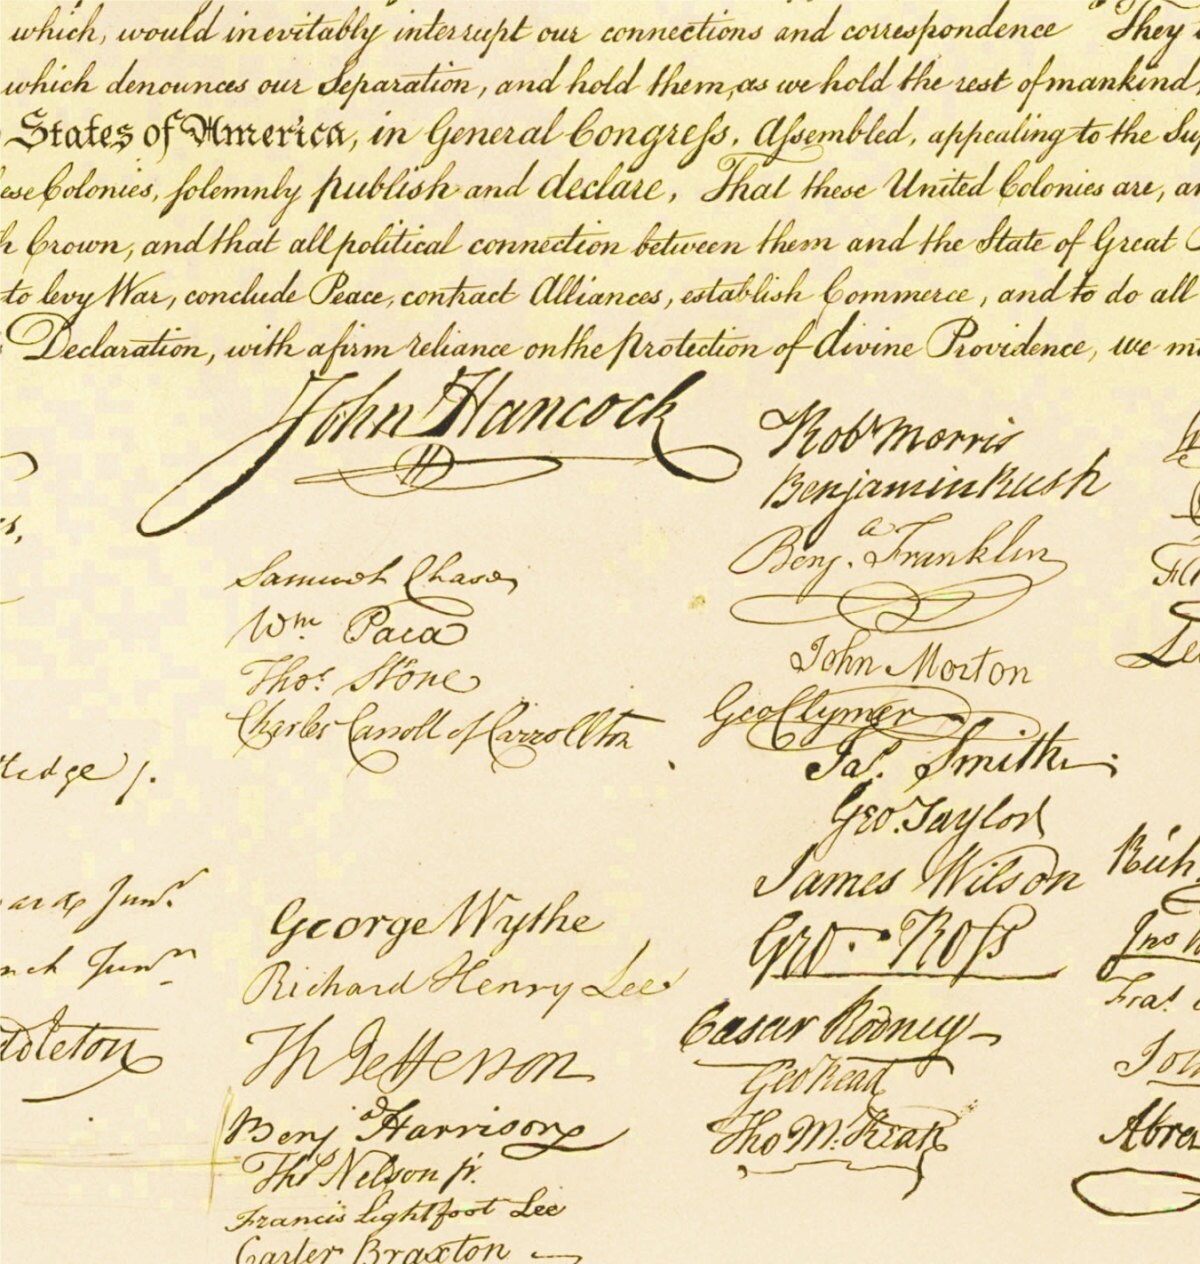 which, would inevitably interrupt our connections and correspondence They
which denounces our Separation, and hold them, as we hold the rest of mankind,
States of America, in General Congress, Assembled, appealing to the Sup
ese Colonies, solemnly publish and declare, That these United Colonies are, an
h Crown, and that all political connection between them and the State of Great
to levy War, conclude Peace, contract Alliances, establish Commerce, and to do all
Declaration, with a firm reliance on the protection of divine Providence, we mu
John Hancock
Samuel Chase
Wm. Paca
Thos. Stone
Charles Carroll of Carrollton
George Wythe
Richard Henry Lee
Th Jefferson
Benja Harrison
Thos Nelson jr.
Francis Lightfoot Lee
Carter Braxton
Robt Morris
Benjamin Rush
Benja. Franklin
John Morton
Geo Clymer
Jas. Smith
Geo. Taylor
James Wilson
Geo. Ross
Caesar Rodney
Geo Read
Tho M:Kean
tledge jr.
ard Junr.
nch Junr.
ddleton
Rich
Jno
Fras.
Abra